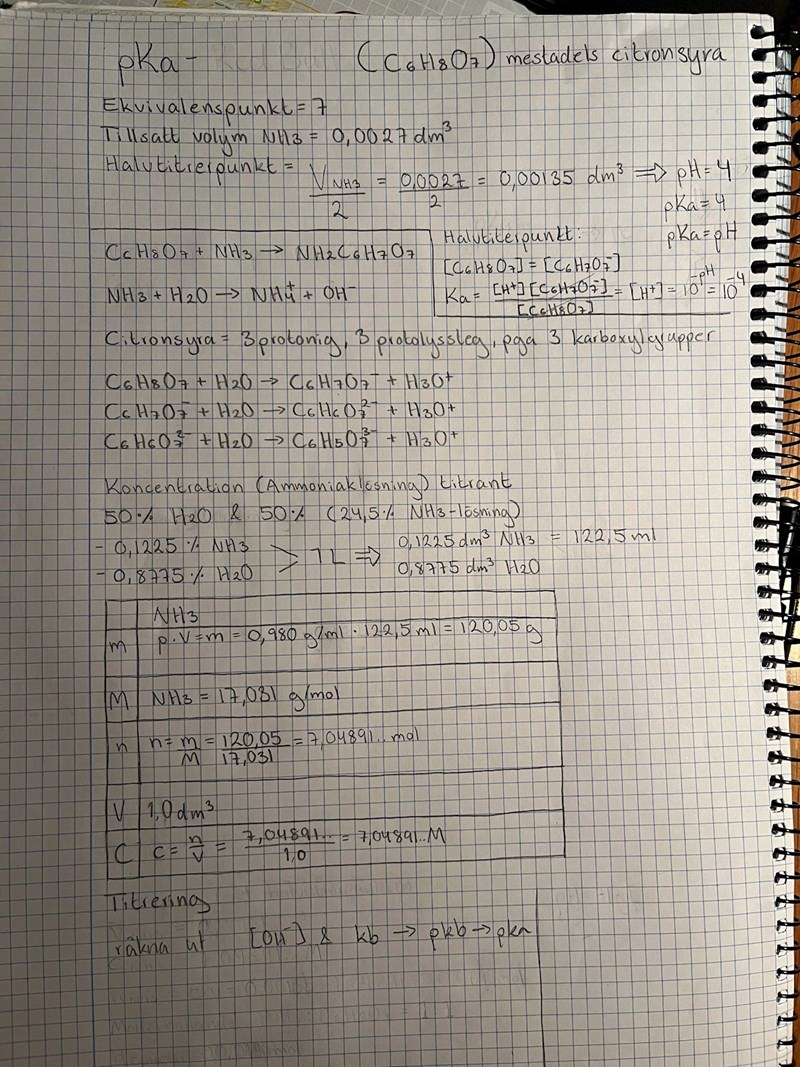 pKa - (C6H8O7) mestadels citronsyra
Ekvivalenspunkt = 7
Tillsatt volym NH3 = 0,0027 dm³
Halvtitrerpunkt = V_NH3/2 = 0,0027/2 = 0,00135 dm³ ⇒ pH = 4
pKa = 4
pKa = pH
C6H8O7 + NH3 → NH2C6H7O7
NH3 + H2O → NH4⁺ + OH⁻
Halvtiterpunkt:
[C6H8O7] = [C6H7O7⁻]
Ka = [H+][C6H7O7⁻]/[C6H8O7] = [H+] = 10^-pH = 10^-4
Citronsyra = 3 protonig, 3 protolyssteg, pga 3 karboxylgrupper
C6H8O7 + H2O → C6H7O7⁻ + H3O+
C6H7O7⁻ + H2O → C6H6O7²⁻ + H3O+
C6H6O7²⁻ + H2O → C6H5O7³⁻ + H3O+
Koncentration (Ammoniaklösning) titrant
50% H2O & 50% (24,5% NH3-lösning)
- 0,1225% NH3
- 0,8775% H2O
> 1 L ⇒
0,1225 dm³ NH3 = 122,5 ml
0,8775 dm³ H2O
NH3
m p·V = m = 0,980 g/ml · 122,5 ml = 120,05 g
M NH3 = 17,031 g/mol
n n = m/M = 120,05/17,031 = 7,04891.. mol
V 1,0 dm³
C c = n/V = 7,04891../1,0 = 7,04891.. M
Titrering
räkna ut [OH⁻] & kb → pkb → pka